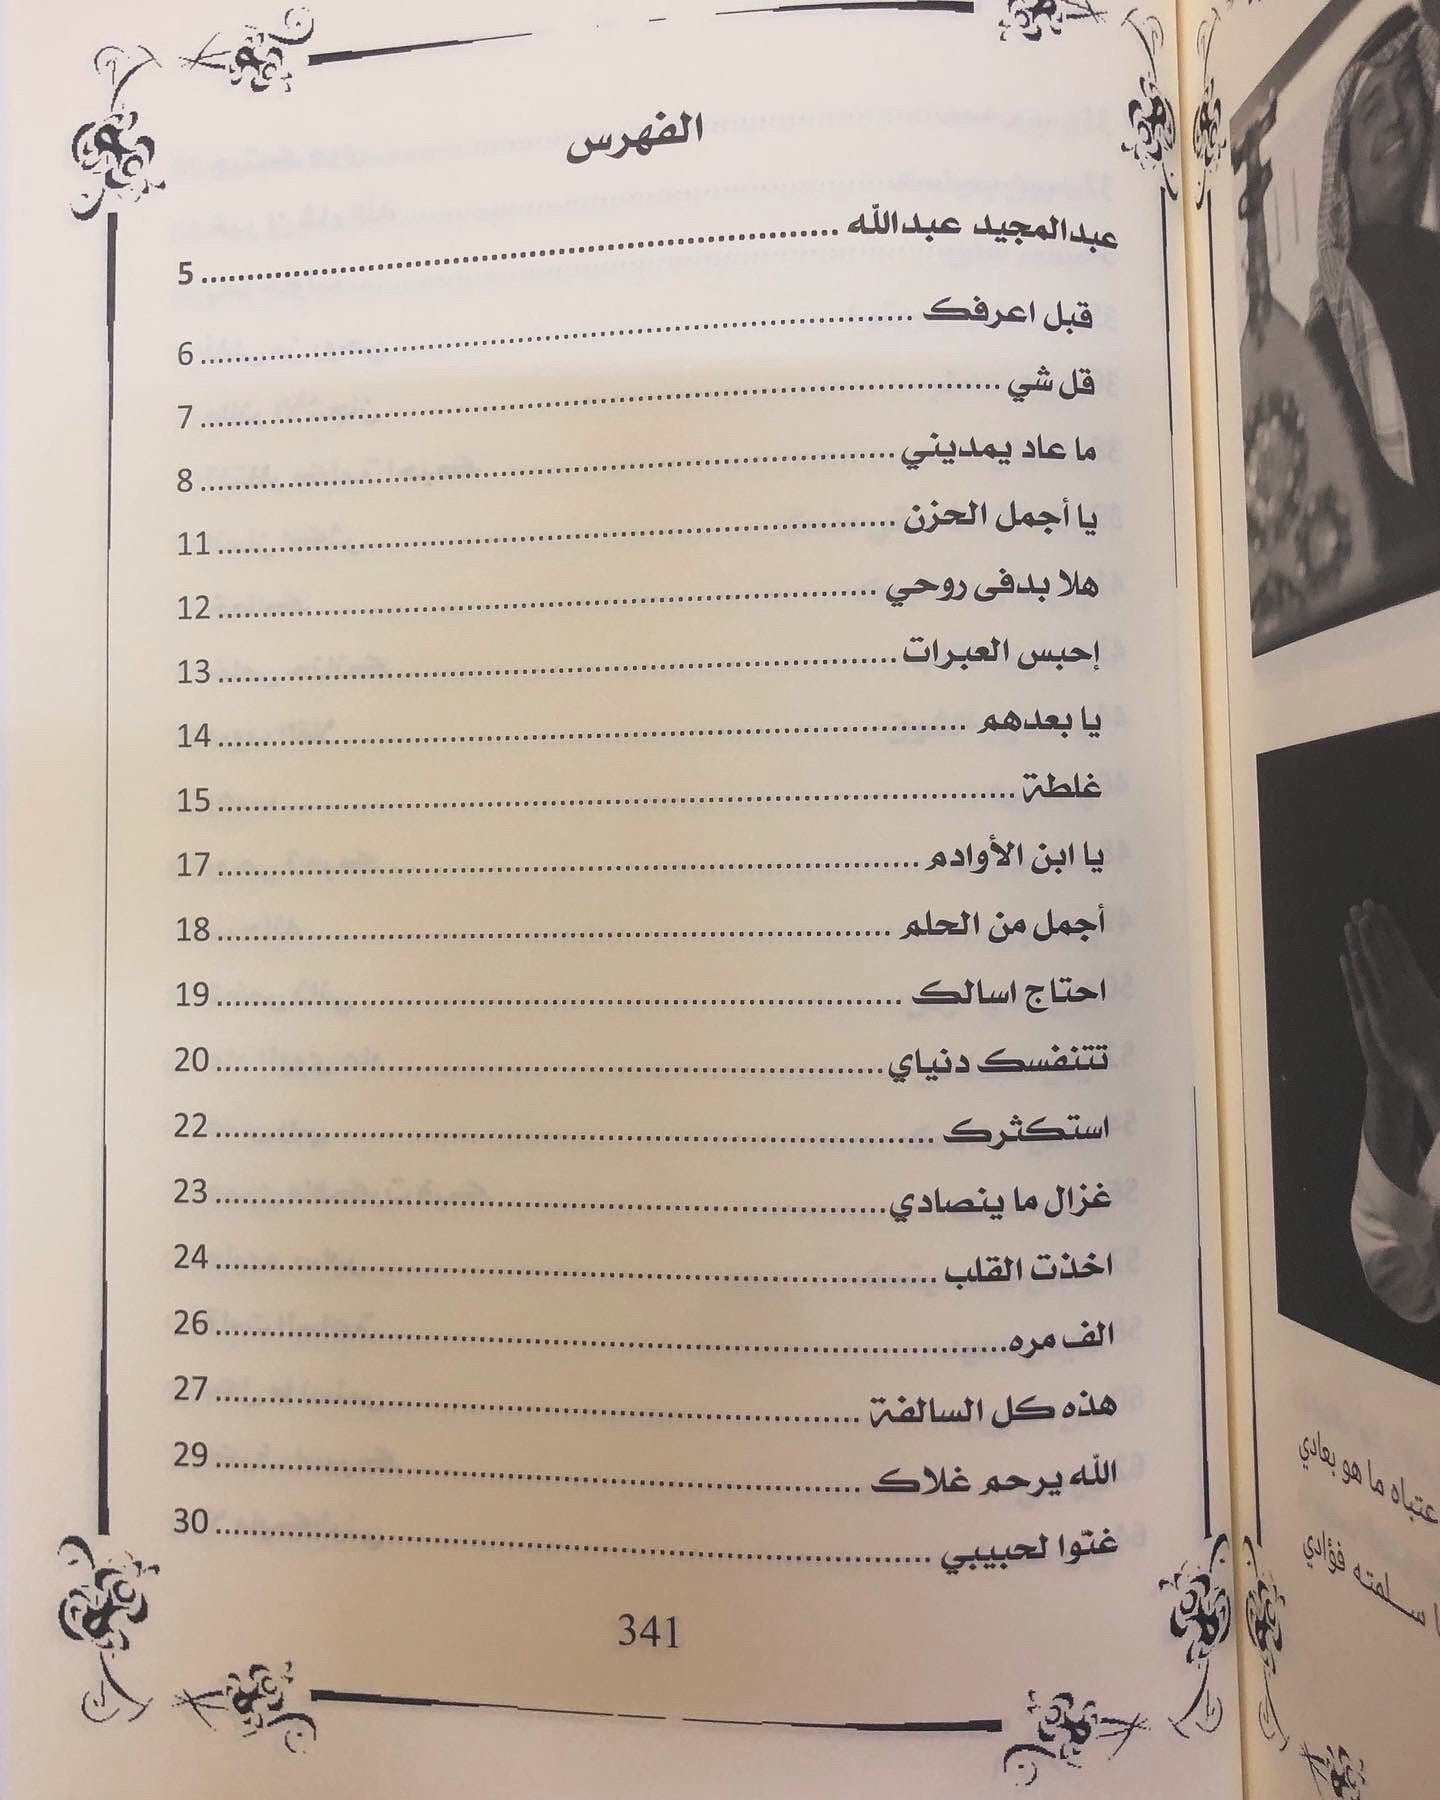 الفهرس
عبدالمجيد عبدالله ........ 5
قبل اعرفك ........ 6
قل شي ........ 7
ما عاد يمديني ........ 8
يا أجمل الحزن ........ 11
هلا بدفى روحي ........ 12
إحبس العبرات ........ 13
يا بعدهم ........ 14
غلطة ........ 15
يا ابن الأوادم ........ 17
أجمل من الحلم ........ 18
احتاج اسالك ........ 19
تتنفسك دنياي ........ 20
استكثرك ........ 22
غزال ما ينصادي ........ 23
اخذت القلب ........ 24
الف مره ........ 26
هذه كل السالفة ........ 27
الله يرحم غلاك ........ 29
غنوا لحبيبي ........ 30
341
ما هو بعادي
فؤادي